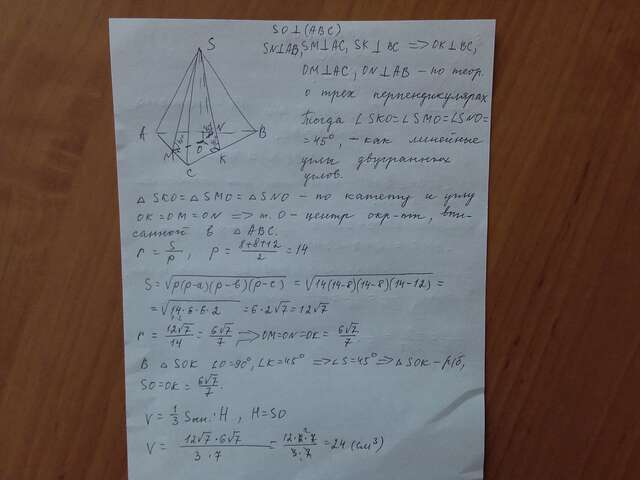 SO⊥(ABC)
SN⊥AB, SM⊥AC, SK⊥BC => OK⊥BC,
OM⊥AC, ON⊥AB - по теор.
о трех перпендикулярах
Тогда ∠SKO=∠SMO=∠SNO=
=45°, - как линейные
углы двугранных
углов.
S
A
M
C
O
N
K
B
△SKO=△SMO=△SNO - по катету и углу
OK=OM=ON => т.O - центр окр-ти, впи-
санной в △ABC.
r = S/p, p = (8+8+12)/2 = 14
S=√p(p-a)(p-b)(p-c) = √14(14-8)(14-8)(14-12) =
=√14·6·6·2 = 6·2√7=12√7
r = 12√7/14 = 6√7/7 => OM=ON=OK= 6√7/7.
В △SOK ∠O=90°, ∠K=45° => ∠S=45° => △SOK - р/б,
SO=OK= 6√7/7.
V = 1/3 Sосн.·H, H=SO
V = 12√7·6√7/3·7 = 12·6·7/3·7 = 24 (см³)